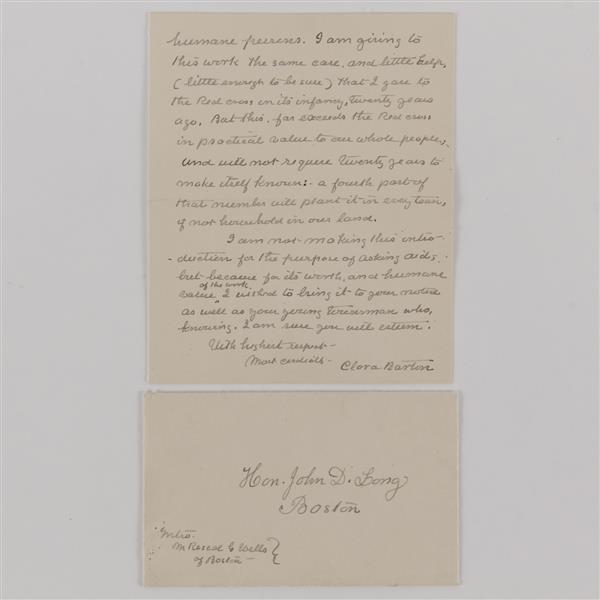 humane persons. I am giving to
this work the same care, and little help,
(little enough to be sure) that I gave to
the Red cross in its infancy, twenty years
ago. But this far exceeds the Red cross
in practical value to our whole people,
and will not require twenty years to
make itself known: a fourth part of
that number will plant it in every town,
if not household in our land.
I am not making this intro-
duction for the purpose of asking aids,
but because for its worth, and humane
of the work
value I wished to bring it to your notice
as well as your young townsman who,
knowing, I am sure you will esteem.
With highest respect -
Most cordially -
Clara Barton
Hon. John D. Long
Boston
Intro.
Mr Roscoe G Wells
of Boston